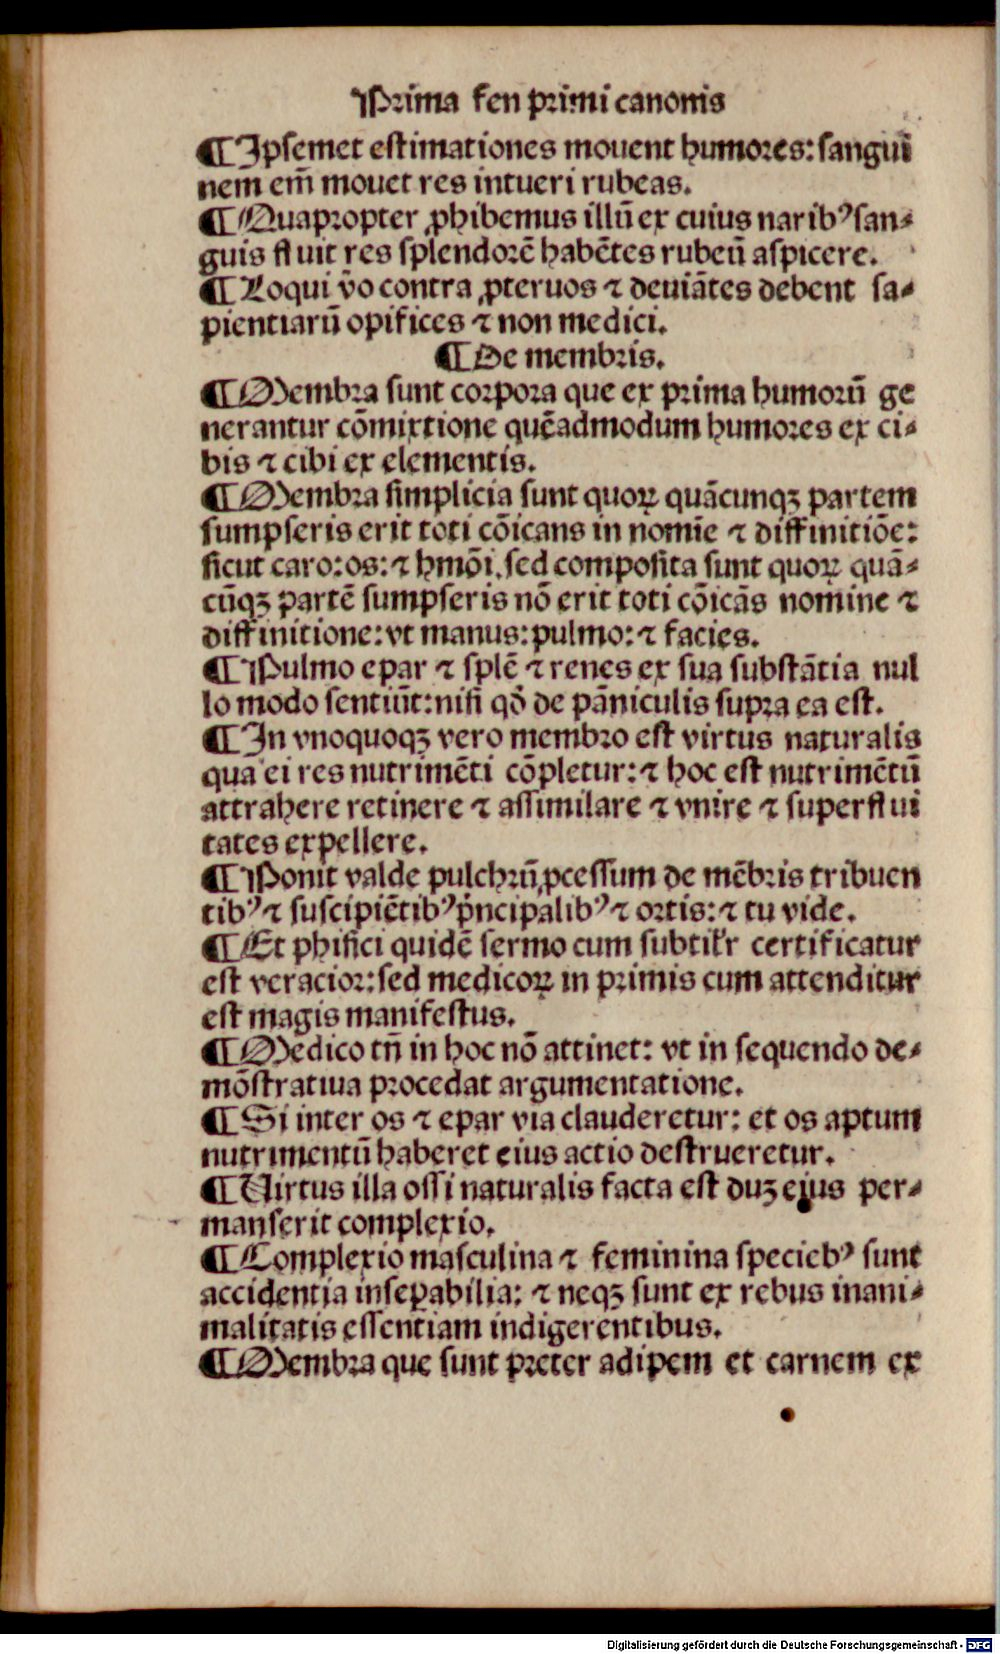 Prima fen primi canonis
¶ Ipsemet estimationes mouent humores: sangui
nem em̄ mouet res intueri rubeas.
¶ Quapropter ꝓhibemus illū ex cuius naribꝰ san⸗
guis fluit res splendorē habētes rubeū aspicere.
¶ Loqui v̄o contra ꝓteruos ⁊ deuiātes debent sa⸗
pientiarū opifices ⁊ non medici.
¶ De membris.
¶ Membra sunt corpora que ex prima humorū ge
nerantur cōmixtione quēadmodum humores ex ci⸗
bis ⁊ cibi ex elementis.
¶ Membra simplicia sunt quoꝝ quācunqꝫ partem
sumpseris erit toti cōicans in nomīe ⁊ diffinitiōe:
sicut caro: os: ⁊ hmōi. sed composita sunt quoꝝ quā⸗
cūqꝫ partē sumpseris nō erit toti cōicās nomine ⁊
diffinitione: vt manus: pulmo: ⁊ facies.
¶ Pulmo epar ⁊ splē ⁊ renes ex sua substātia nul
lo modo sentiūt: nisi qd̄ de pāniculis supra ea est.
¶ In vnoquoqꝫ vero membro est virtus naturalis
qua ei res nutrimēti cōpletur: ⁊ hoc est nutrimētū
attrahere retinere ⁊ assimilare ⁊ vnire ⁊ superflui
tates expellere.
¶ Ponit valde pulchrū ꝓcessum de mēbris tribuen
tibꝰ ⁊ suscipiētibꝰ p̄ncipalibꝰ ⁊ ortis: ⁊ tu vide.
¶ Et phisici quidē sermo cum subtilr̄ certificatur
est veracior: sed medicoꝝ in primis cum attenditur
est magis manifestus.
¶ Medico tn̄ in hoc nō attinet: vt in sequendo de⸗
mōstratiua procedat argumentatione.
¶ Si inter os ⁊ epar via clauderetur: et os aptum
nutrimentū haberet eius actio destrueretur.
¶ Uirtus illa ossi naturalis facta est duꝫ eius per⸗
manserit complexio.
¶ Complexio masculina ⁊ feminina speciebꝰ sunt
accidentia insepabilia: ⁊ neqꝫ sunt ex rebus inani⸗
malitatis essentiam indigerentibus.
¶ Membra que sunt preter adipem et carnem ex
Digitalisierung gefördert durch die Deutsche Forschungsgemeinschaft - DFG